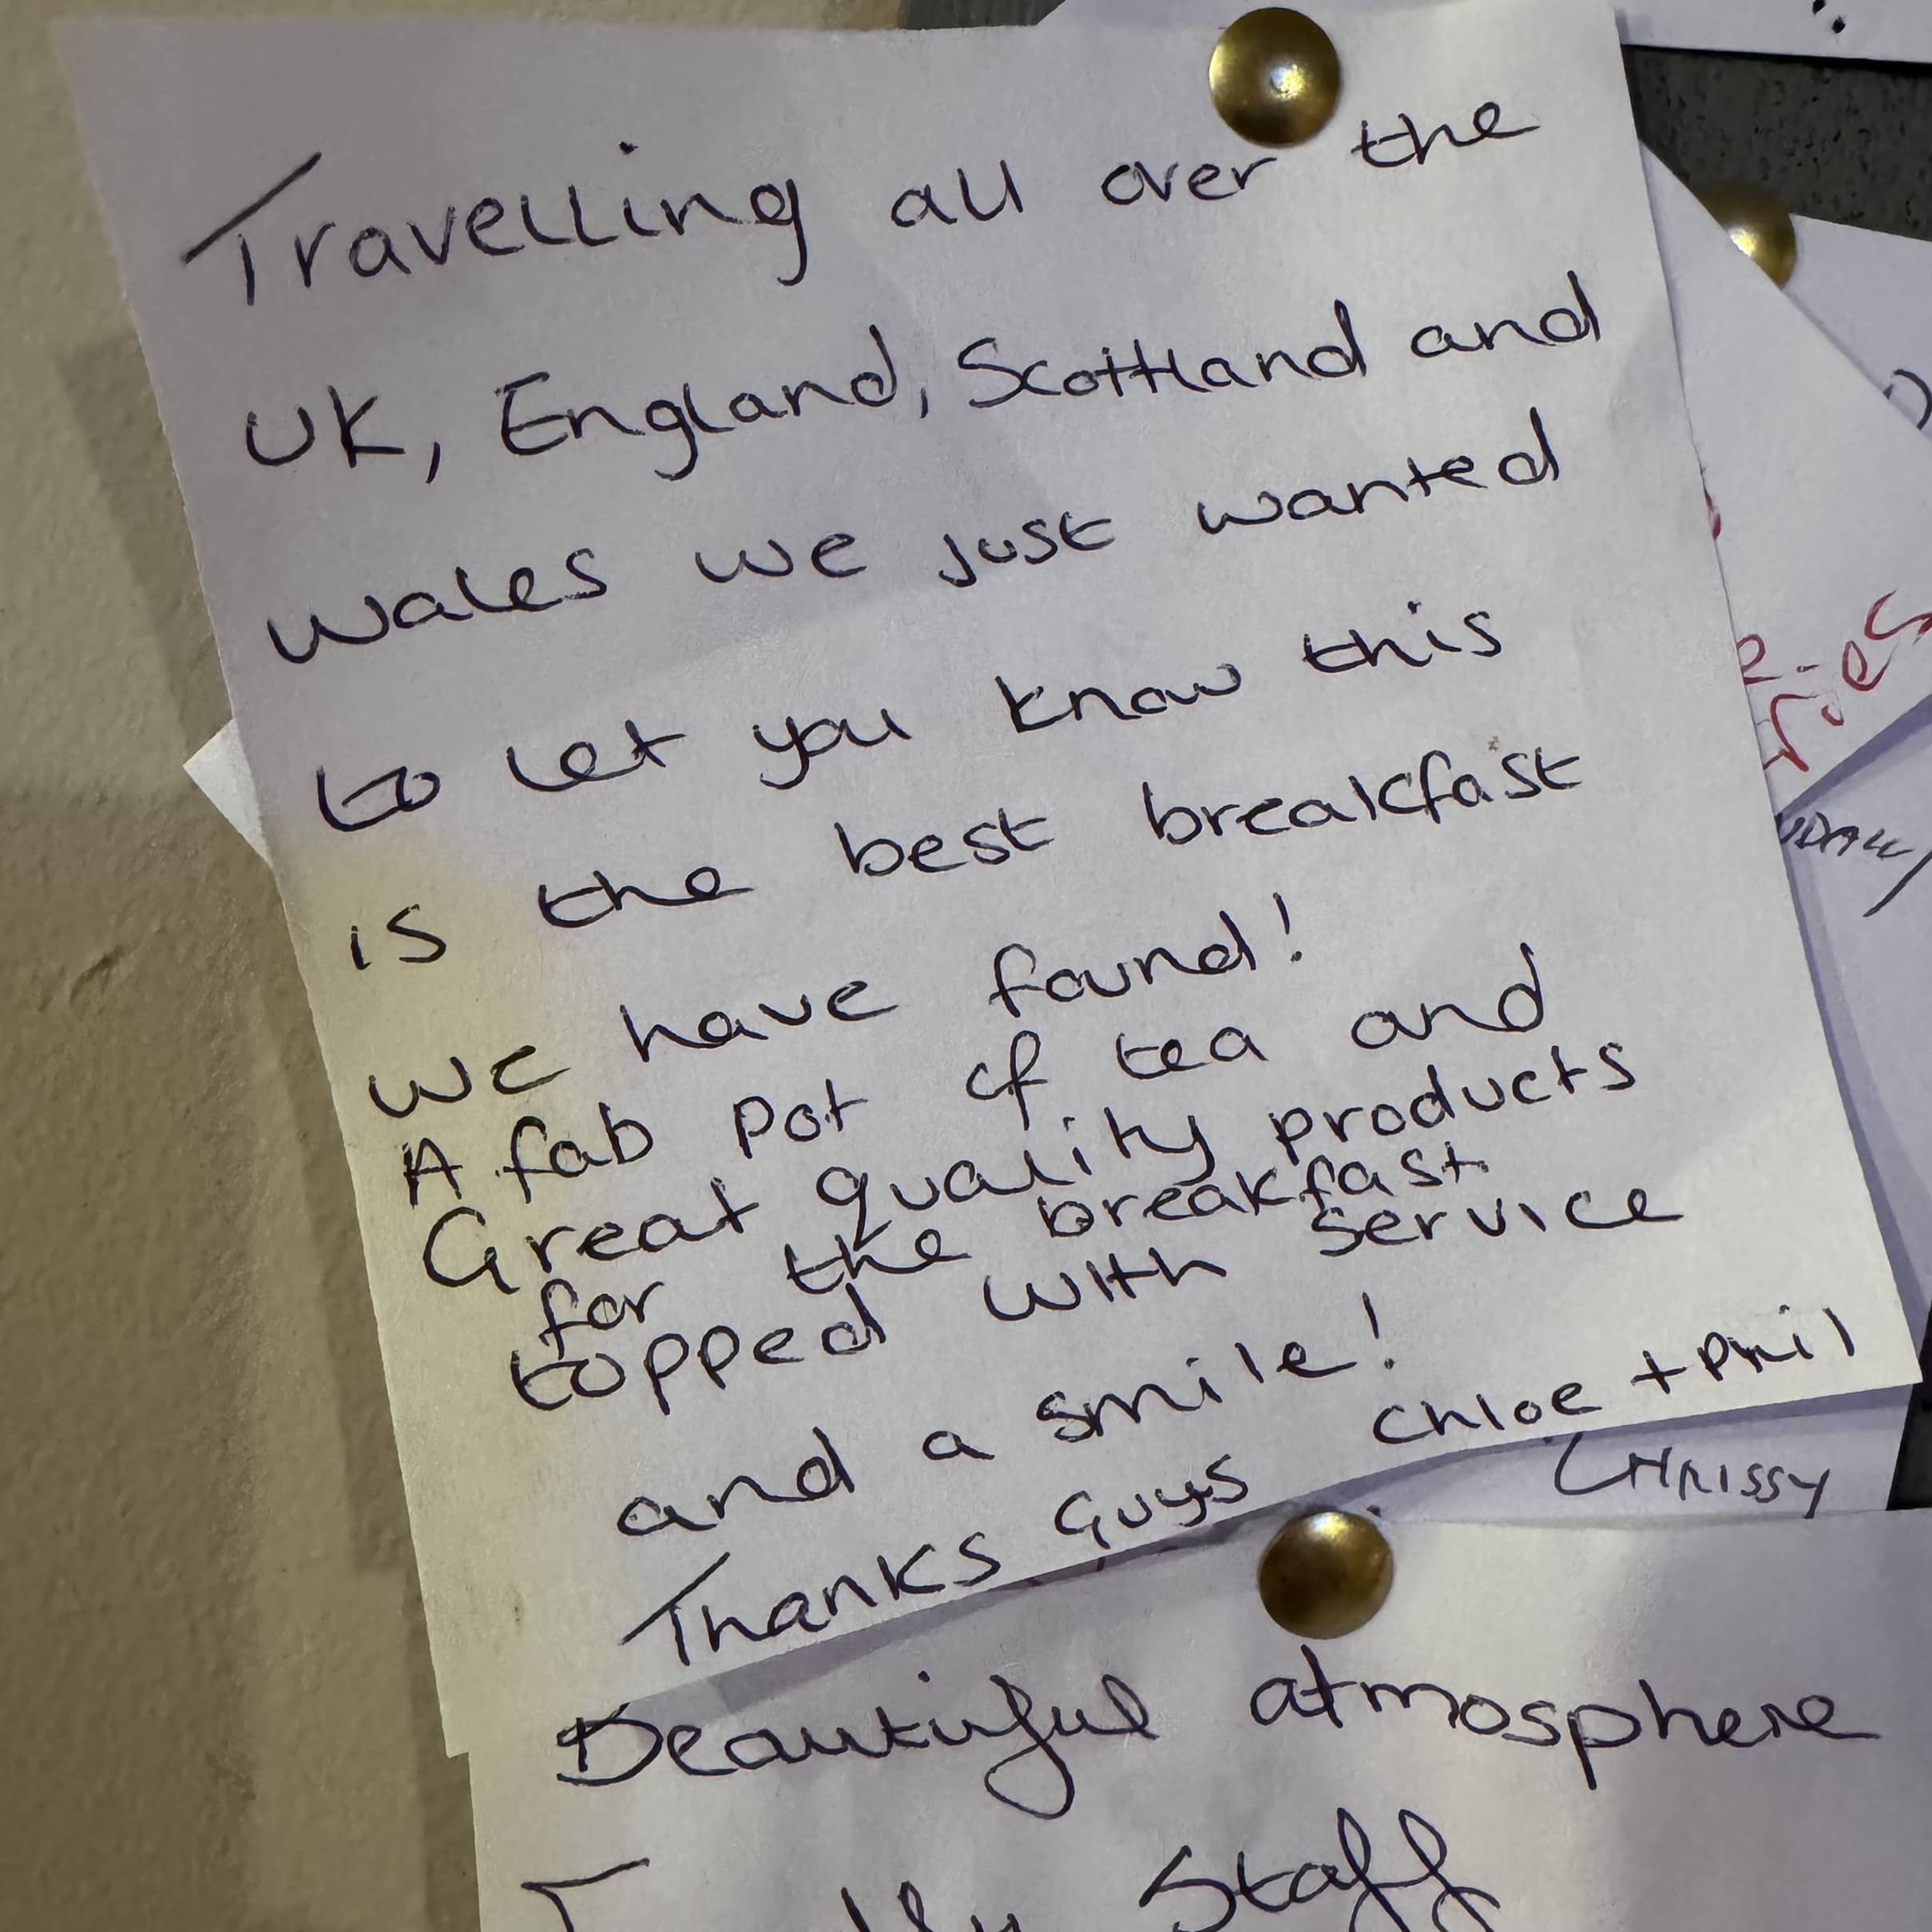 Travelling all over the
UK, England, Scottland and
Wales we just wanted
to let you know this
is the best breakfast
we have found!
A fab pot of tea and
Great quality products
for the breakfast
topped with service
and a smile!
Thanks Guys Chloe + Phil
CHRISSY
Beautiful atmosphere
Staff